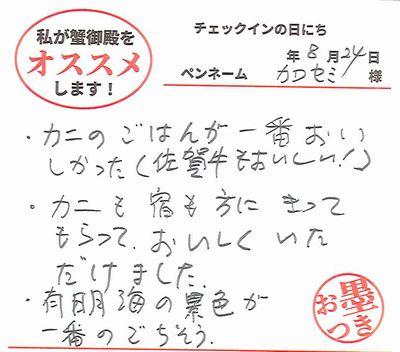 私が蟹御殿を
オススメ
します！
チェックインの日にち
年 8月24日
ペンネーム カワセミ 様
・カニのごはんが一番おい
しかった（佐賀牛もおいしい！）
・カニも宿も方に きって
もらって、おいしくいた
だけました。
・有明海の景色が
一番のごちそう.
お墨つき